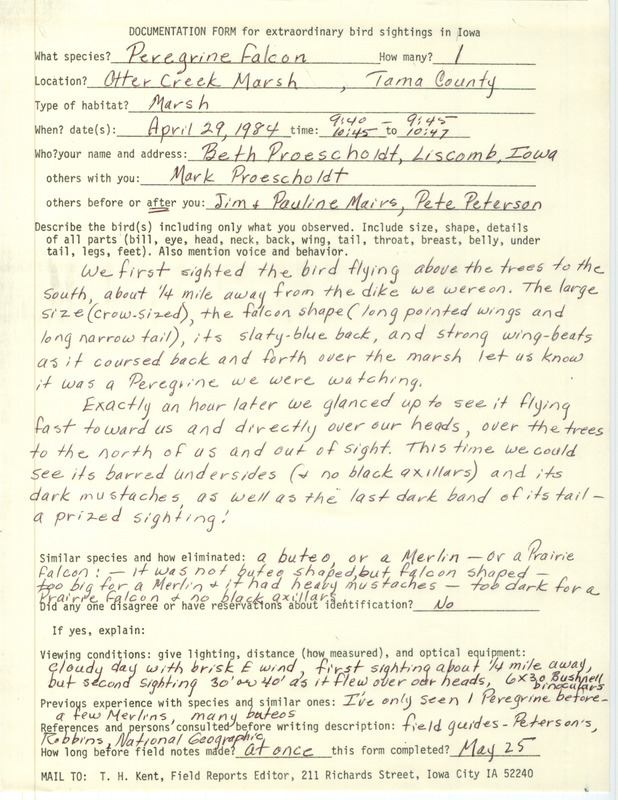 DOCUMENTATION FORM for extraordinary bird sightings in Iowa
What species? Peregrine Falcon How many? 1
Location? Otter Creek Marsh , Tama County
Type of habitat? Marsh
9:40 - 9:45
When? date(s): April 29, 1984 time: 10:45 to 10:47
Who?your name and address: Beth Proescholdt, Liscomb, Iowa
others with you: Mark Proescholdt
others before or after you: Jim & Pauline Mairs, Pete Peterson
Describe the bird(s) including only what you observed. Include size, shape, details
of all parts (bill, eye, head, neck, back, wing, tail, throat, breast, belly, under
tail, legs, feet). Also mention voice and behavior.
We first sighted the bird flying above the trees to the
south, about 1/4 mile away from the dike we were on. The large
size (crow-sized), the falcon shape (long pointed wings and
long narrow tail), its slaty-blue back, and strong wing-beats
as it coursed back and forth over the marsh let us know
it was a Peregrine we were watching.
Exactly an hour later we glanced up to see it flying
fast toward us and directly over our heads, over the trees
to the north of us and out of sight. This time we could
see its barred undersides (& no black axillars) and its
dark mustaches, as well as the last dark band of its tail -
a prized sighting!
Similar species and how eliminated: a buteo, or a Merlin - or a Prairie
Falcon: - it was not buteo shaped, but falcon shaped -
too big for a Merlin & it had heavy mustaches - too dark for a
Prairie Falcon & no black axillars
Did any one disagree or have reservations about identification? No
If yes, explain:
Viewing conditions: give lighting, distance (how measured), and optical equipment:
cloudy day with brisk E wind, first sighting about 1/4 mile away,
but second sighting 30' or 40' as it flew over our heads, 6x30 Bushnell
binoculars
Previous experience with species and similar ones: I've only seen 1 Peregrine before-
a few Merlins, many buteos
References and persons consulted before writing description: field guides - Peterson's,
Robbins, National Geographic
How long before field notes made? at once this form completed? May 25
MAIL TO: T. H. Kent, Field Reports Editor, 211 Richards Street, Iowa City IA 52240